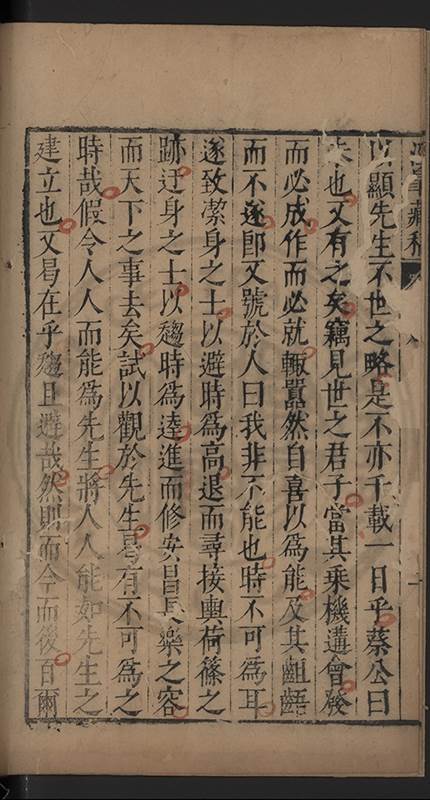 藏稿
以顯先生不世之略是不亦千載一日乎蔡公曰
未也又有之矣竊見世之君子當其乘機遘會發
而必成作而必就輙囂然自喜以爲能及其齟齬
而不遂卽又號於人曰我非不能也時不可爲耳
遂致潔身之士以避時爲高退而尋接輿荷篠之
跡迂身之士以趨時爲達進而修安昌長樂之容
而天下之事去矣試以觀於先生曷有不可爲之
時哉假令人人而能爲先生將人人能如先生之
建立也又曷在乎趨且避哉然則而今而後百爾